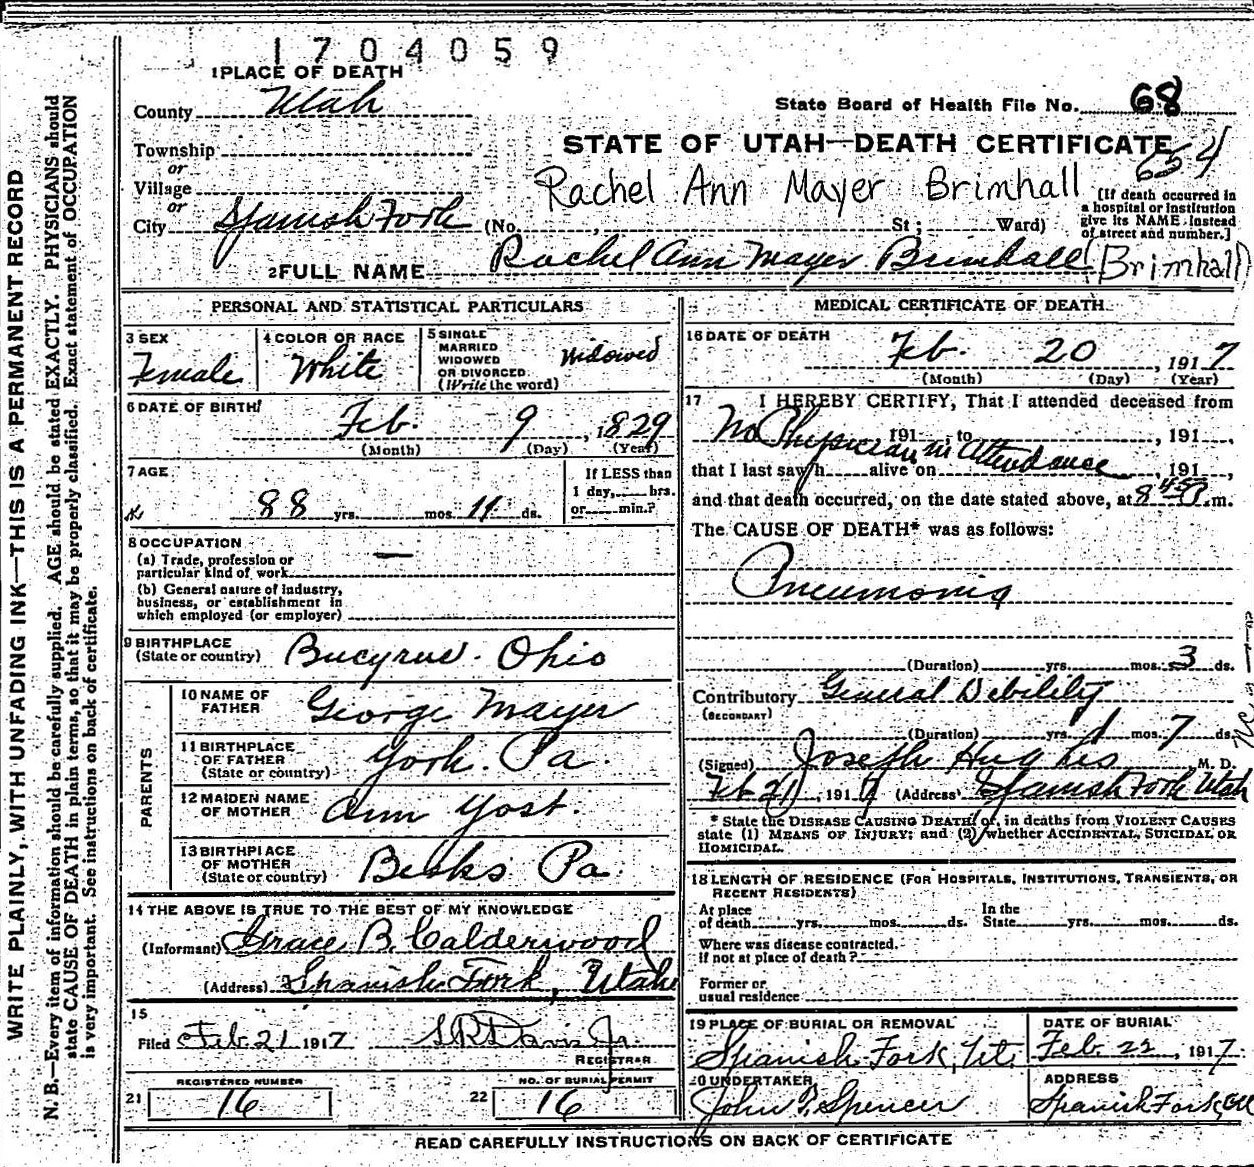 1704059
1 PLACE OF DEATH
County Utah
State Board of Health File No. 68
Township
STATE OF UTAH—DEATH CERTIFICATE
654
or
Village
Rachel Ann Mayer Brimhall
or
City Spanish Fork (No. , St ; Ward)
[If death occurred in
a hospital or institution
give its NAME instead
of street and number.]
2 FULL NAME Rachel Ann Mayer Brimhall (Brimhall)
PERSONAL AND STATISTICAL PARTICULARS
3 SEX
Female
4 COLOR OR RACE
White
5 SINGLE
MARRIED
WIDOWED
OR DIVORCED
(Write the word)
Widowed
6 DATE OF BIRTH
Feb. 9, 1829
(Month) (Day) (Year)
7 AGE
88 yrs. mos. 11 ds.
If LESS than
1 day, hrs.
or min.?
8 OCCUPATION
(a) Trade, profession or
particular kind of work —
(b) General nature of industry,
business, or establishment in
which employed (or employer)
9 BIRTHPLACE
(State or country) Bucyrus. Ohio
PARENTS
10 NAME OF
FATHER George Mayer
11 BIRTHPLACE
OF FATHER
(State or country) York. Pa.
12 MAIDEN NAME
OF MOTHER Ann Yost.
13 BIRTHPLACE
OF MOTHER
(State or country) Berks Pa.
14 THE ABOVE IS TRUE TO THE BEST OF MY KNOWLEDGE
(Informant) Grace B. Calderwood
(Address) Spanish Fork, Utah
15
Filed Feb 21 1917 S R Davis Jr.
REGISTRAR
REGISTERED NUMBER
21 16
NO. OF BURIAL PERMIT
22 16
MEDICAL CERTIFICATE OF DEATH
16 DATE OF DEATH
Feb. 20, 1917
(Month) (Day) (Year)
17 I HEREBY CERTIFY, That I attended deceased from
No Physician in Attendance
191 , to , 191 ,
that I last saw h alive on , 191 ,
and that death occurred, on the date stated above, at 8 45 P.m.
The CAUSE OF DEATH* was as follows:
Pneumonia
(Duration) yrs. mos. 3 ds.
Contributory General Debility
(SECONDARY)
(Duration) yrs. 1 mos. 7 ds.
(Signed) Joseph Hughes, M. D.
Feb 21, 1917 (Address) Spanish Fork Utah
* State the DISEASE CAUSING DEATH, or, in deaths from VIOLENT CAUSES
state (1) MEANS OF INJURY; and (2) whether ACCIDENTAL, SUICIDAL OR
HOMICIDAL.
18 LENGTH OF RESIDENCE (FOR HOSPITALS, INSTITUTIONS, TRANSIENTS, OR
RECENT RESIDENTS)
At place
of death yrs. mos. ds.
In the
State yrs. mos. ds.
Where was disease contracted,
if not at place of death?
Former or
usual residence
19 PLACE OF BURIAL OR REMOVAL
Spanish Fork, Ut.
DATE OF BURIAL
Feb. 22, 1917
20 UNDERTAKER
John P. Spencer
ADDRESS
Spanish Fork
READ CAREFULLY INSTRUCTIONS ON BACK OF CERTIFICATE
WRITE PLAINLY, WITH UNFADING INK—THIS IS A PERMANENT RECORD
N. B.—Every item of information should be carefully supplied. AGE should be stated EXACTLY. PHYSICIANS should
state CAUSE OF DEATH in plain terms, so that it may be properly classified. Exact statement of OCCUPATION
is very important. See instructions on back of certificate.